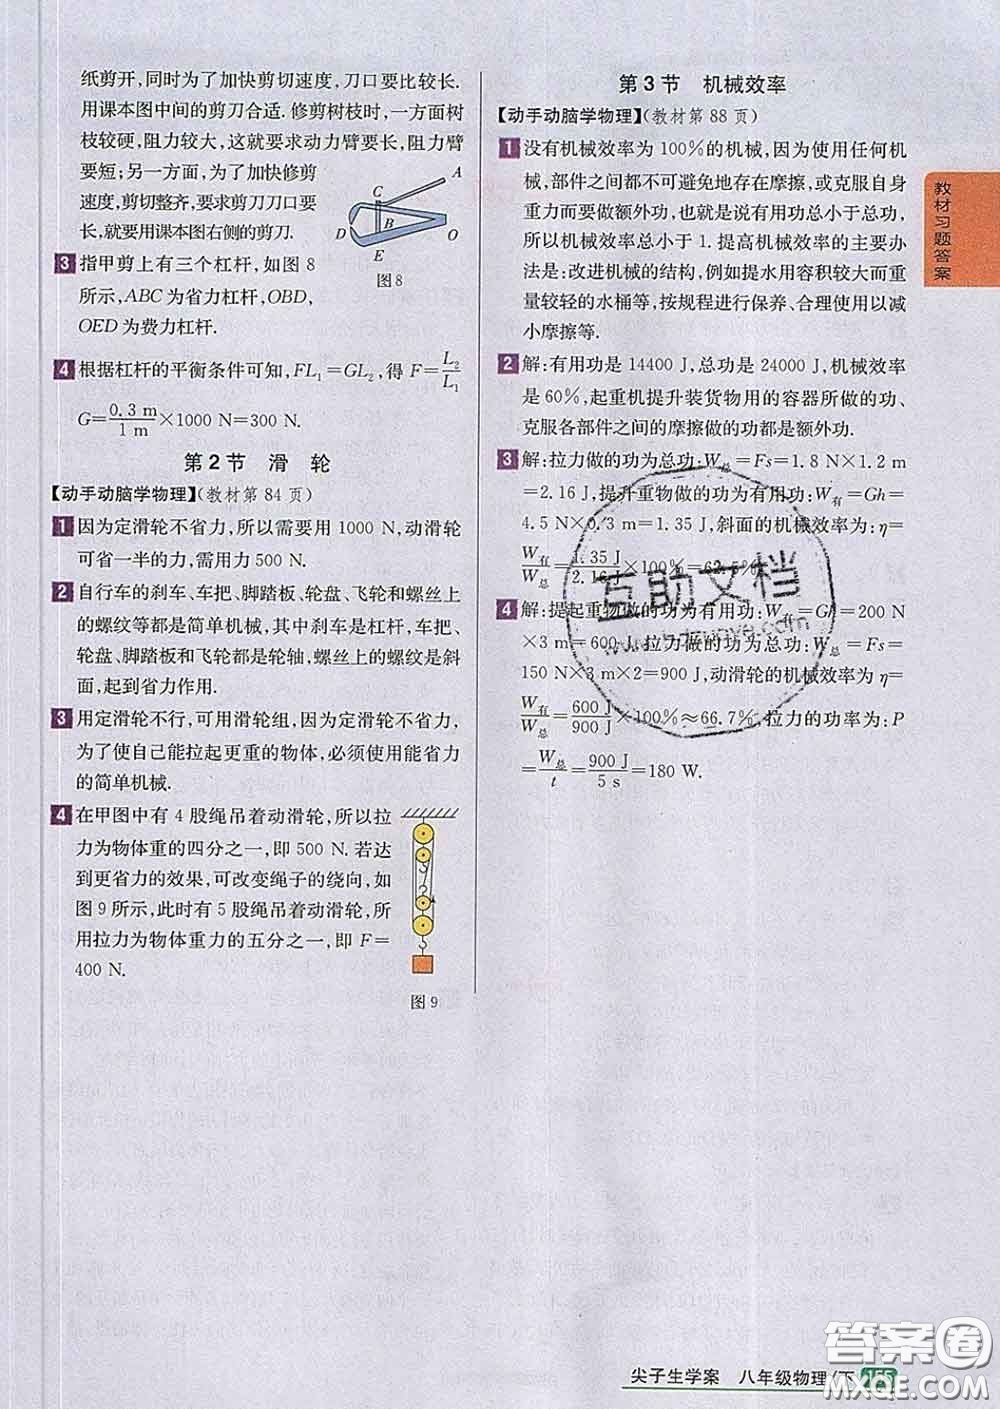 纸剪开,同时为了加快剪切速度,刀口要比较长.
用课本图中间的剪刀合适. 修剪树枝时,一方面树
枝较硬,阻力较大,这就要求动力臂要长,阻力臂
要短;另一方面,为了加快修剪
速度,剪切整齐,要求剪刀刀口要
长,就要用课本图右侧的剪刀.
A
C
B
D
O
E
图 8
3 指甲剪上有三个杠杆,如图 8
所示,ABC 为省力杠杆,OBD,
OED 为费力杠杆.
4 根据杠杆的平衡条件可知,FL₁=GL₂,得 F=L₂/L₁
G=0.3 m/1 m×1000 N=300 N.
第 2 节 滑 轮
【动手动脑学物理】(教材第 84 页)
1 因为定滑轮不省力,所以需要用 1000 N,动滑轮
可省一半的力,需用力 500 N.
2 自行车的刹车、车把、脚踏板、轮盘、飞轮和螺丝上
的螺纹等都是简单机械,其中刹车是杠杆,车把、
轮盘、脚踏板和飞轮都是轮轴,螺丝上的螺纹是斜
面,起到省力作用.
3 用定滑轮不行,可用滑轮组,因为定滑轮不省力,
为了使自己能拉起更重的物体,必须使用能省力
的简单机械.
4 在甲图中有 4 股绳吊着动滑轮,所以拉
力为物体重的四分之一,即 500 N.若达
到更省力的效果,可改变绳子的绕向,如
图 9 所示,此时有 5 股绳吊着动滑轮,所
用拉力为物体重力的五分之一,即 F=
400 N.
图 9
第 3 节 机械效率
【动手动脑学物理】(教材第 88 页)
1 没有机械效率为 100%的机械,因为使用任何机
械,部件之间都不可避免地存在摩擦,或克服自身
重力而要做额外功,也就是说有用功总小于总功,
所以机械效率总小于 1. 提高机械效率的主要办
法是:改进机械的结构,例如提水用容积较大而质
量较轻的水桶等,按规程进行保养、合理使用以减
小摩擦等.
2 解:有用功是 14400 J,总功是 24000 J,机械效率
是 60%,起重机提升装货物用的容器所做的功、
克服各部件之间的摩擦做的功都是额外功.
3 解:拉力做的功为总功:W总=Fs=1.8 N×1.2 m
=2.16 J,提升重物做的功为有用功:W有=Gh=
4.5 N×0.3 m=1.35 J,斜面的机械效率为:η=
W有/W总=1.35 J/2.16 J×100%=62.5%
4 解:提起重物做的功为有用功:W有=Gh=200 N
×3 m=600 J,拉力做的功为总功:W总=Fs=
150 N×3 m×2=900 J,动滑轮的机械效率为 η=
W有/W总=600 J/900 J×100%≈66.7%,拉力的功率为:P
=W总/t=900 J/5 s=180 W.
教材习题答案
互助文档
尖子生学案 八年级物理(下) 155
答案圈
MXQE.COM